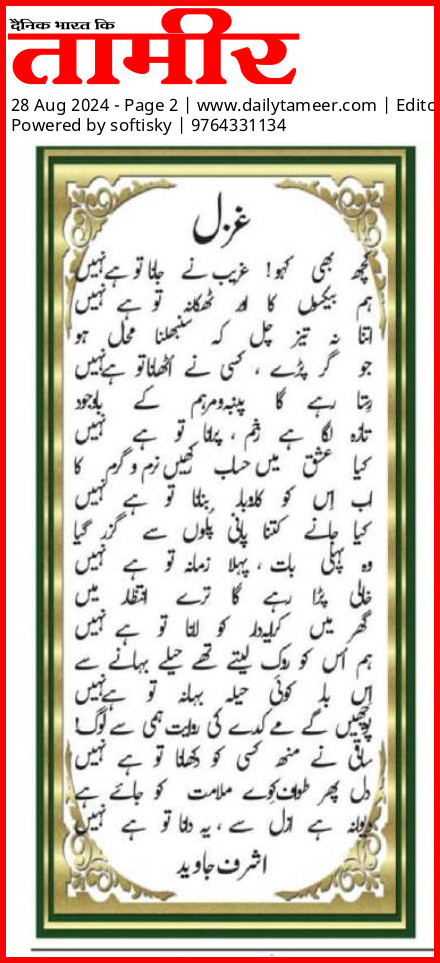 दैनिक भारत कि
तामीर
28 Aug 2024 - Page 2 | www.dailytameer.com | Edito
Powered by softisky | 9764331134
غزل
کچھ بھی کہو! غریب نے جانا تو ہے نہیں
ہم بیکسوں کا اور ٹھکانہ تو ہے نہیں
اتنا نہ تیز چل کہ سنبھلنا محال ہو
جو گر پڑے ، کسی نے اُٹھانا تو ہے نہیں
رِستا رہے گا پنبہ و مرہم کے باوجود
تازہ لگا ہے زخم ، پرانا تو ہے نہیں
کیا عشق میں حساب رکھیں نرم و گرم کا
اب اِس کو کاروبار بنانا تو ہے نہیں
کیا جانے کتنا پانی پلوں سے گزر گیا
وہ پہلی بات ، پہلا زمانہ تو ہے نہیں
خالی پڑا رہے گا ترے انتظار میں
گھر میں کرایہ دار کو لانا تو ہے نہیں
ہم اُس کو روک لیتے تھے حیلے بہانے سے
اِس بار کوئی حیلہ بہانہ تو ہے نہیں
پوچھیں گے مے کدے کی روایت ہمی سے لوگ!
ساقی نے منھ کسی کو دکھانا تو ہے نہیں
دل پھر طوافِ کوئے ملامت کو جائے ہے
دیوانہ ہے ازل سے ، یہ دانا تو ہے نہیں
اشرف جاوید